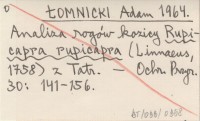 D ŁOMNICKI Adam 1964.
Analiza rogów kozicy Rupi-
capra rupicapra (Linnaeus,
1758) z Tatr. — Ochr. Przyr.
30: 141-156.